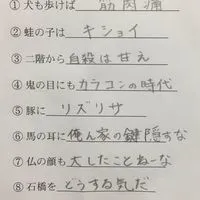 ① 犬も歩けば 筋肉痛
② 蛙の子は キショイ
③ 二階から自殺は甘え
④ 鬼の目にもカラコンの時代
⑤ 豚に リズリサ
⑥ 馬の耳に俺ん家の鍵隠すな
⑦ 仏の顔も大したことねーな
⑧ 石橋を どうする気だ